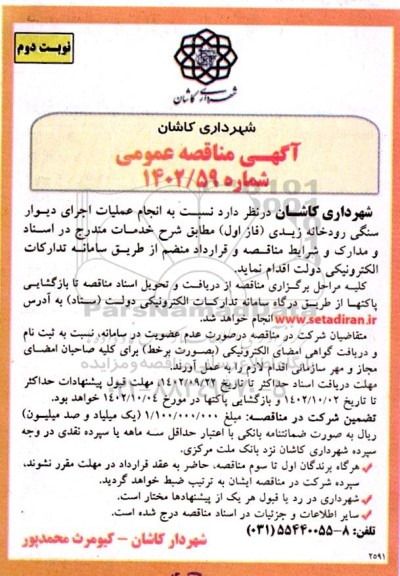 نوبت دوم
شهرداری کاشان
شهرداری کاشان
آگهی مناقصه عمومی
شماره ۱۴۰۲/۵۹
شهرداری کاشان درنظر دارد نسبت به انجام عملیات اجرای دیوار
سنگی رودخانه زیدی (فاز اول) مطابق شرح خدمات مندرج در اسناد
و مدارک و شرایط مناقصه و قرارداد منضم از طریق سامانه تدارکات
الکترونیکی دولت اقدام نماید.
کلیه مراحل برگزاری مناقصه از دریافت و تحویل اسناد مناقصه تا بازگشایی
پاکتها از طریق درگاه سامانه تدارکات الکترونیکی دولت (ستاد) به آدرس
www.setadiran.ir انجام خواهد شد.
متقاضیان شرکت در مناقصه درصورت عدم عضویت در سامانه، نسبت به ثبت نام
و دریافت گواهی امضای الکترونیکی (بصورت برخط) برای کلیه صاحبان امضای
مجاز و مهر سازمانی اقدام لازم را به عمل آورند.
مهلت دریافت اسناد حداکثر تا تاریخ ۱۴۰۲/۰۹/۲۲، مهلت قبول پیشنهادات حداکثر
تا تاریخ ۱۴۰۲/۱۰/۰۲ و بازگشایی پاکتها در مورخ ۱۴۰۲/۱۰/۰۴ خواهد بود.
تضمین شرکت در مناقصه: مبلغ ۱/۱۰۰/۰۰۰/۰۰۰ (یک میلیارد و صد میلیون)
ریال به صورت ضمانتنامه بانکی با اعتبار حداقل سه ماهه یا سپرده نقدی در وجه
سپرده شهرداری کاشان نزد بانک ملت مرکزی.
هرگاه برندگان اول تا سوم مناقصه، حاضر به عقد قرارداد در مهلت مقرر نشوند،
سپرده شرکت در مناقصه ایشان به ترتیب ضبط خواهد گردید.
شهرداری در رد یا قبول هر یک از پیشنهادها مختار است.
سایر اطلاعات و جزئیات در اسناد مناقصه درج شده است.
تلفن: ۸-۵۵۴۴۰۰۵۵ (۰۳۱)
شهردار کاشان - کیومرث محمدپور
۲۵۹۱